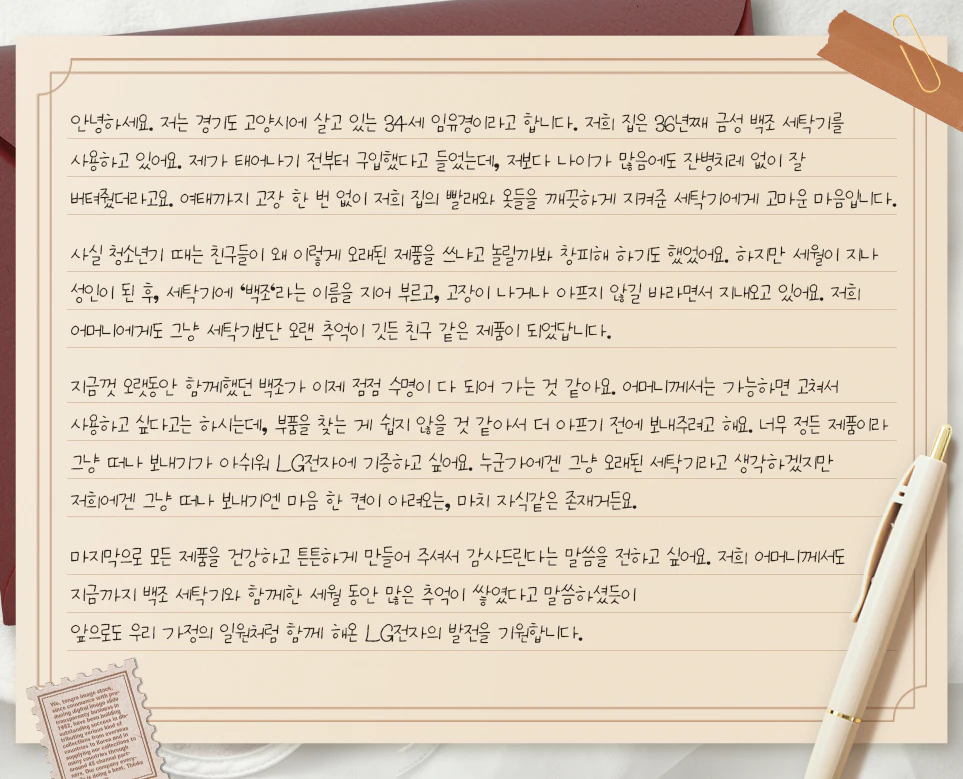 안녕하세요. 저는 경기도 고양시에 살고 있는 34세 임유경이라고 합니다. 저희 집은 36년째 금성 백조 세탁기를
사용하고 있어요. 제가 태어나기 전부터 구입했다고 들었는데, 저보다 나이가 많음에도 잔병치레 없이 잘
버텨줬더라고요. 여태까지 고장 한 번 없이 저희 집의 빨래와 옷들을 깨끗하게 지켜준 세탁기에게 고마운 마음입니다.
사실 청소년기 때는 친구들이 왜 이렇게 오래된 제품을 쓰냐고 놀릴까봐 창피해 하기도 했었어요. 하지만 세월이 지나
성인이 된 후, 세탁기에 '백조'라는 이름을 지어 부르고, 고장이 나거나 아프지 않길 바라면서 지내오고 있어요. 저희
어머니에게도 그냥 세탁기보단 오랜 추억이 깃든 친구 같은 제품이 되었답니다.
지금껏 오랫동안 함께했던 백조가 이제 점점 수명이 다 되어 가는 것 같아요. 어머니께서는 가능하면 고쳐서
사용하고 싶다고는 하시는데, 부품을 찾는 게 쉽지 않을 것 같아서 더 아프기 전에 보내주려고 해요. 너무 정든 제품이라
그냥 떠나 보내기가 아쉬워 LG전자에 기증하고 싶어요. 누군가에겐 그냥 오래된 세탁기라고 생각하겠지만
저희에겐 그냥 떠나 보내기엔 마음 한 켠이 아려오는, 마치 자식같은 존재거든요.
마지막으로 모든 제품을 건강하고 튼튼하게 만들어 주셔서 감사드린다는 말씀을 전하고 싶어요. 저희 어머니께서도
지금까지 백조 세탁기와 함께한 세월 동안 많은 추억이 쌓였다고 말씀하셨듯이
앞으로도 우리 가정의 일원처럼 함께 해온 LG전자의 발전을 기원합니다.
We, tongro image stock,
since commence with pro-
ducing digital image slide
transparency business in
1982, have been building
outstanding success in dis-
tributing various kind of
collections from overseas
countries to Korea and in
supplying our collections to
many countries through
around 45 channel part-
ners. Our company every-